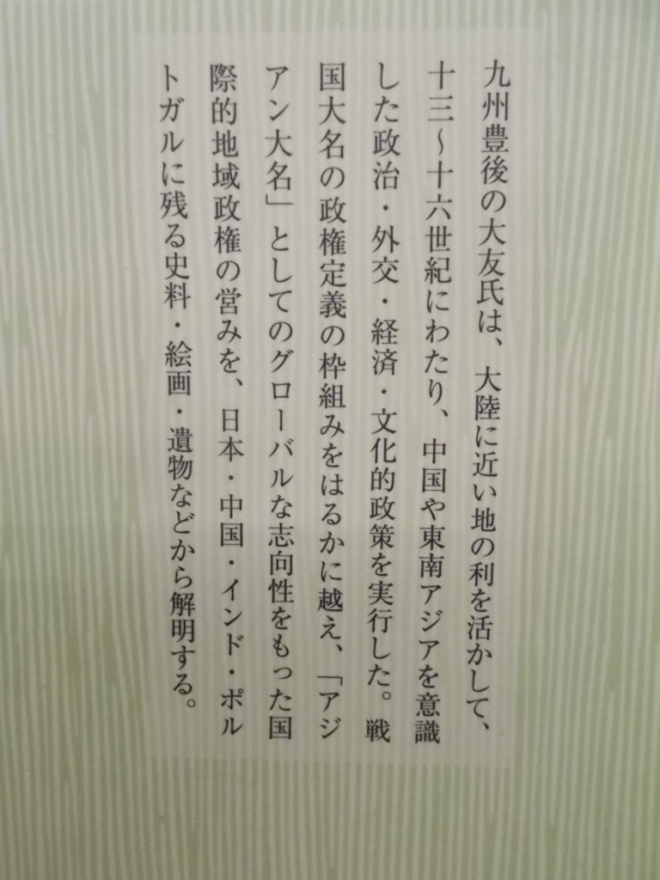 九州豊後の大友氏は、大陸に近い地の利を活かして、
十三～十六世紀にわたり、中国や東南アジアを意識
した政治・外交・経済・文化的政策を実行した。戦
国大名の政権定義の枠組みをはるかに越え、「アジ
アン大名」としてのグローバルな志向性をもった国
際的地域政権の営みを、日本・中国・インド・ポル
トガルに残る史料・絵画・遺物などから解明する。